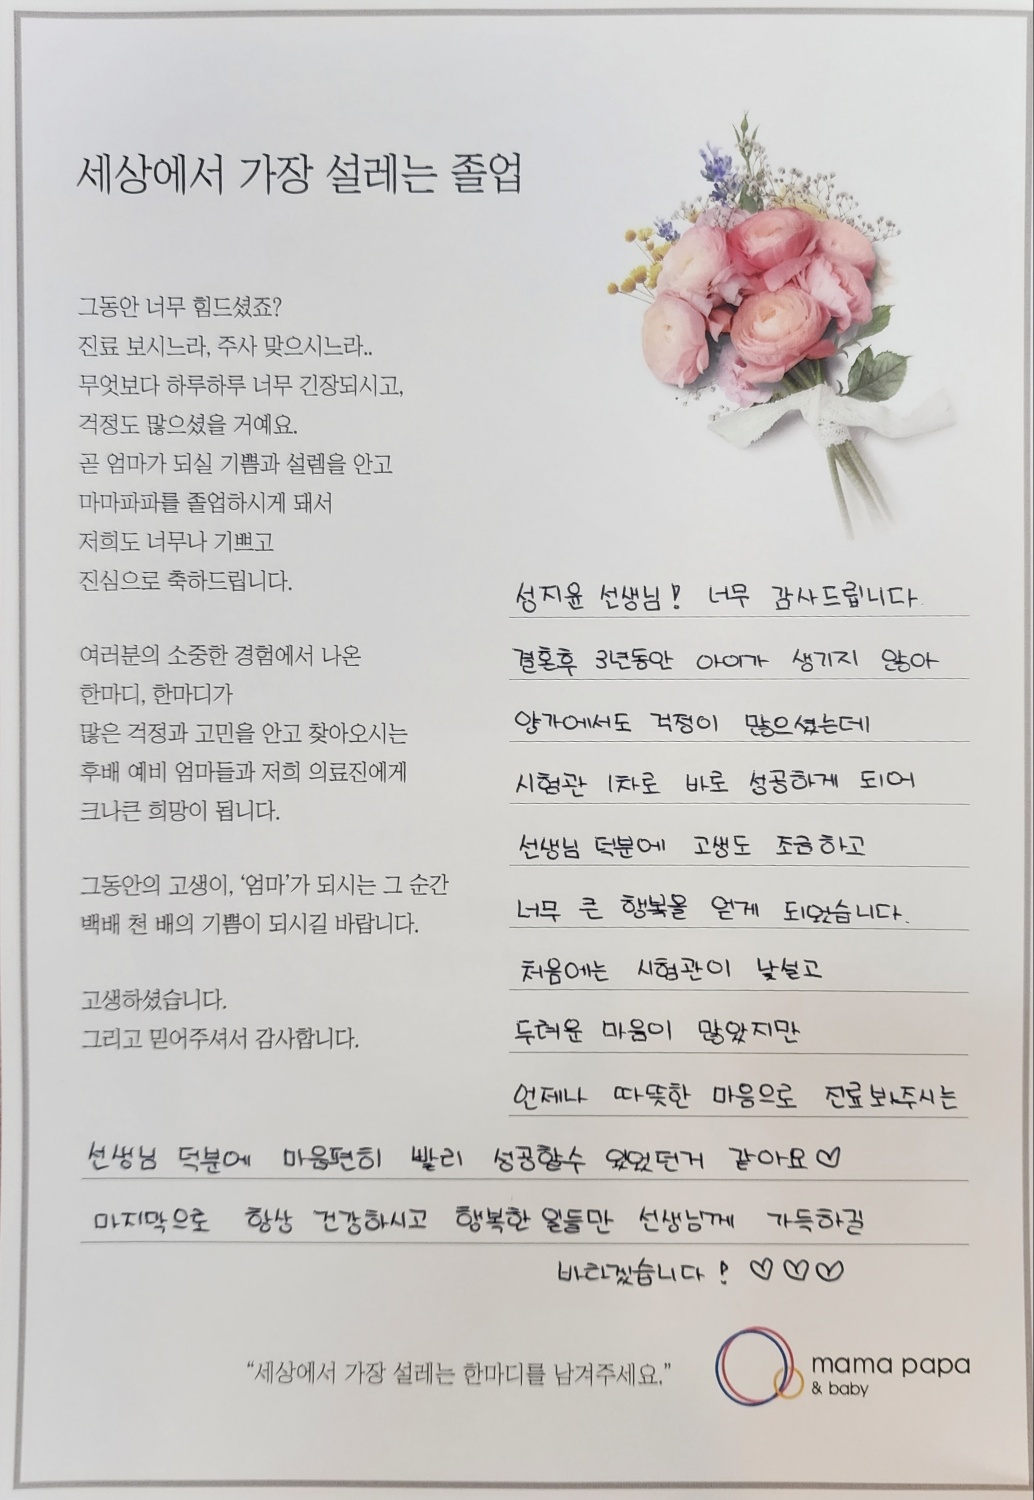 세상에서 가장 설레는 졸업
그동안 너무 힘드셨죠?
진료 보시느라, 주사 맞으시느라..
무엇보다 하루하루 너무 긴장되시고,
걱정도 많으셨을 거예요.
곧 엄마가 되실 기쁨과 설렘을 안고
마마파파를 졸업하시게 돼서
저희도 너무나 기쁘고
진심으로 축하드립니다.
여러분의 소중한 경험에서 나온
한마디, 한마디가
많은 걱정과 고민을 안고 찾아오시는
후배 예비 엄마들과 저희 의료진에게
크나큰 희망이 됩니다.
그동안의 고생이, ‘엄마’가 되시는 그 순간
백배 천 배의 기쁨이 되시길 바랍니다.
고생하셨습니다.
그리고 믿어주셔서 감사합니다.
성지윤 선생님! 너무 감사드립니다.
결혼후 3년동안 아이가 생기지 않아
양가에서도 걱정이 많으셨는데
시험관 1차로 바로 성공하게 되어
선생님 덕분에 고생도 조금하고
너무 큰 행복을 얻게 되었습니다.
처음에는 시험관이 낯설고
두려운 마음이 많았지만
언제나 따뜻한 마음으로 진료봐주시는
선생님 덕분에 마음편히 빨리 성공할수 있었던거 같아요♡
마지막으로 항상 건강하시고 행복한 일들만 선생님께 가득하길
바라겠습니다! ♡♡♡
“세상에서 가장 설레는 한마디를 남겨주세요.”
mama papa
& baby